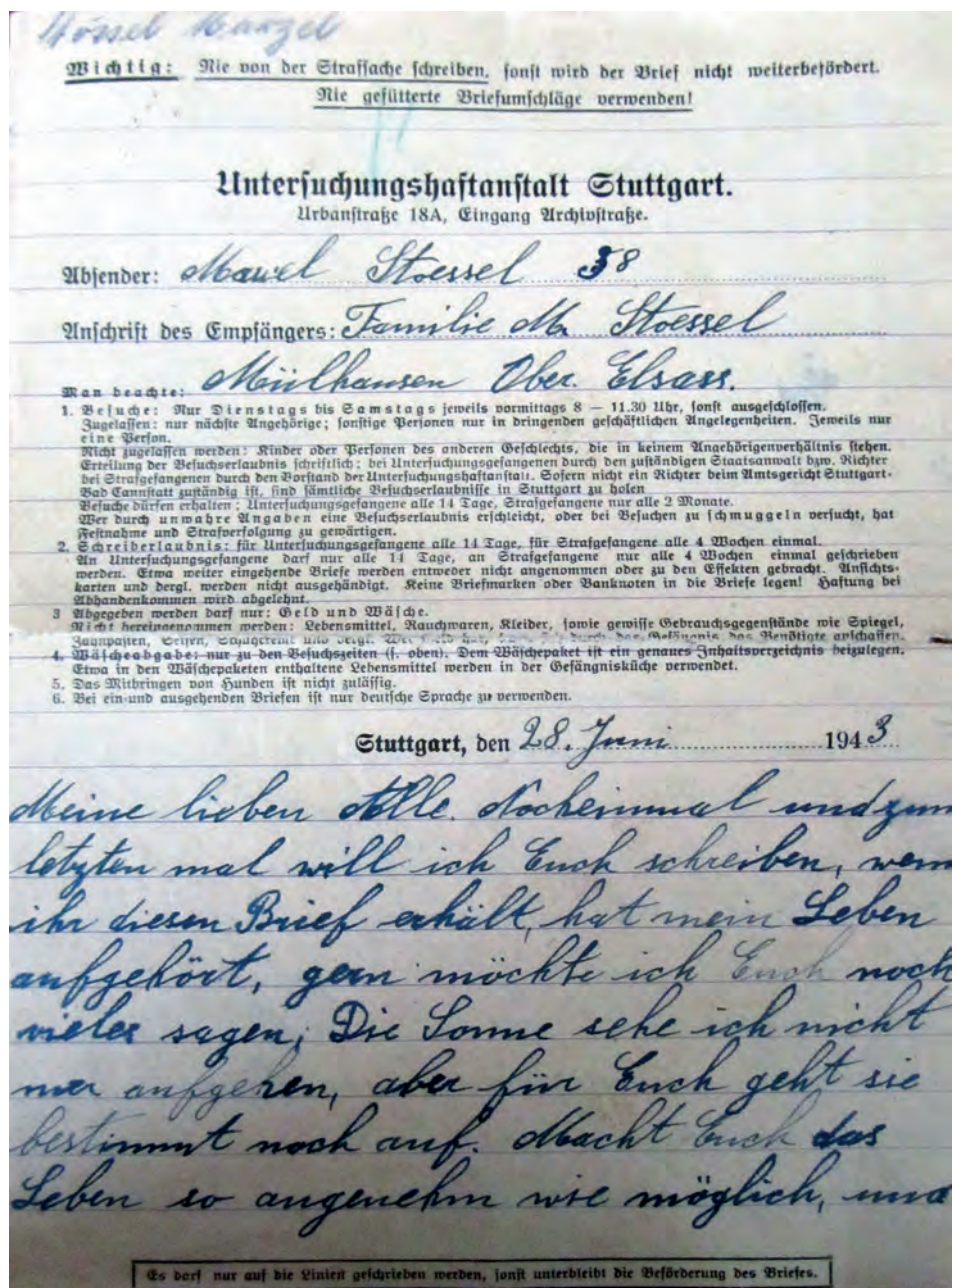 Wichtig: Nie von der Strafsache schreiben, sonst wird der Brief nicht weiterbefördert.
Nie gefütterte Briefumschläge verwenden!
Untersuchungshaftanstalt Stuttgart.
Urbanstraße 18A, Eingang Archivstraße.
Absender: Marcel Stoessel 38
Anschrift des Empfängers: Familie M. Stoessel
Mülhausen Ober. Elsass.
Man beachte:
1. Besuche: Nur Dienstags bis Samstags jeweils vormittags 8 — 11.30 Uhr, sonst ausgeschlossen.
Zugelassen: nur nächste Angehörige; sonstige Personen nur in dringenden geschäftlichen Angelegenheiten. Jeweils nur
eine Person.
Nicht zugelassen werden: Kinder oder Personen des anderen Geschlechts, die in keinem Angehörigenverhältnis stehen.
Erteilung der Besuchserlaubnis schriftlich; bei Untersuchungsgefangenen durch den zuständigen Staatsanwalt bzw. Richter
bei Strafgefangenen durch den Vorstand der Untersuchungshaftanstalt. Sofern nicht ein Richter beim Amtsgericht Stuttgart-
Bad Cannstatt zuständig ist, sind sämtliche Besuchserlaubnisse in Stuttgart zu holen
Besuche dürfen erhalten: Untersuchungsgefangene alle 14 Tage, Strafgefangene nur alle 2 Monate.
Wer durch unwahre Angaben eine Besuchserlaubnis erschleicht, oder bei Besuchen zu schmuggeln versucht, hat
Festnahme und Strafverfolgung zu gewärtigen.
2. Schreiberlaubnis: für Untersuchungsgefangene alle 14 Tage, für Strafgefangene alle 4 Wochen einmal.
An Untersuchungsgefangene darf nur alle 14 Tage, an Strafgefangene nur alle 4 Wochen einmal geschrieben
werden. Etwa weiter eingehende Briefe werden entweder nicht angenommen oder zu den Effekten gebracht. Ansichts-
karten und dergl. werden nicht ausgehändigt. Keine Briefmarken oder Banknoten in die Briefe legen! Haftung bei
Abhandenkommen wird abgelehnt.
3 Abgegeben werden darf nur: Geld und Wäsche.
Nicht hereingenommen werden: Lebensmittel, Rauchwaren, Kleider, sowie gewisse Gebrauchsgegenstände wie Spiegel,
Zahnpasten, Seifen, und dergl. durch das Gefängnis das Benötigte anschaffen.
4. Wäscheabgabe: nur zu den Besuchszeiten (s. oben). Dem Wäschepaket ist ein genaues Inhaltsverzeichnis beizulegen.
Etwa in den Wäschepaketen enthaltene Lebensmittel werden in der Gefängnisküche verwendet.
5. Das Mitbringen von Hunden ist nicht zulässig.
6. Bei ein-und ausgehenden Briefen ist nur deutsche Sprache zu verwenden.
Stuttgart, den 28. Juni 1943
Meine lieben Alle. Nocheinmal und zum
letzten mal will ich Euch schreiben, wenn
ihr diesen Brief erhält, hat mein Leben
aufgehört, gern möchte ich Euch noch
vieles sagen, Die Sonne sehe ich nicht
mer aufgehen, aber für Euch geht sie
bestimmt noch auf. Macht Euch das
Leben so angenehm wie möglich, und
Es darf nur auf die Linien geschrieben werden, sonst unterbleibt die Beförderung des Briefes.